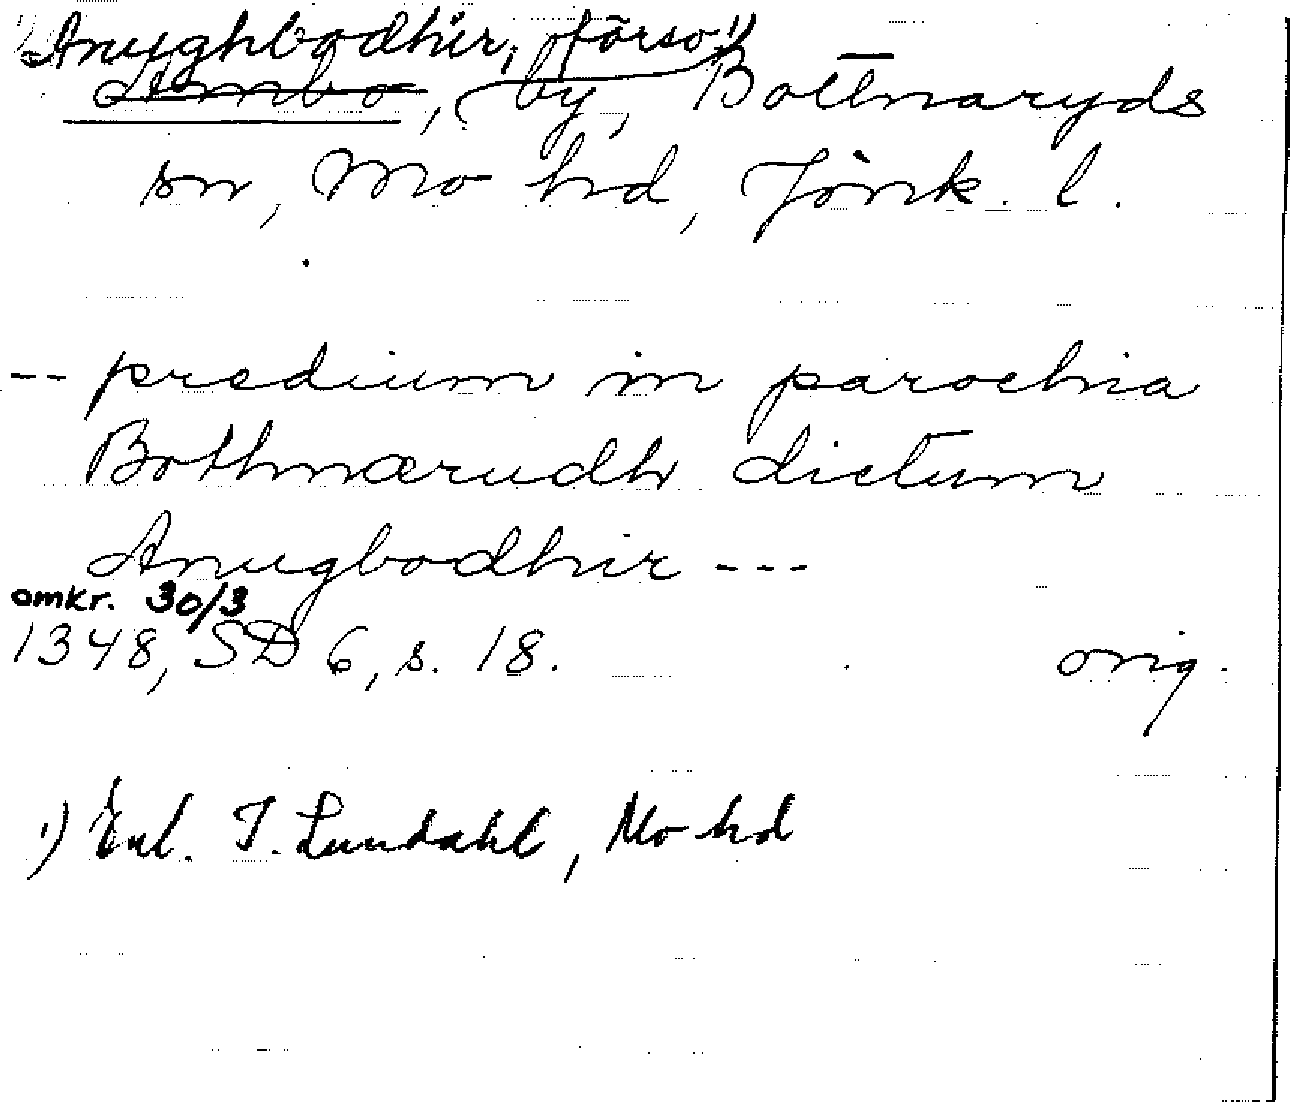 Anughbodhir, förso¹⁾
Ambo, by, Bottnaryds
sn, Mo hd, Jönk. l.
-- predium in parochia
Bothnærudh dictum
Anugbodhir ---
omkr. 30/3
1348, SD 6, s. 18. orig.
¹⁾ Enl. I. Lundahl, Mo hd